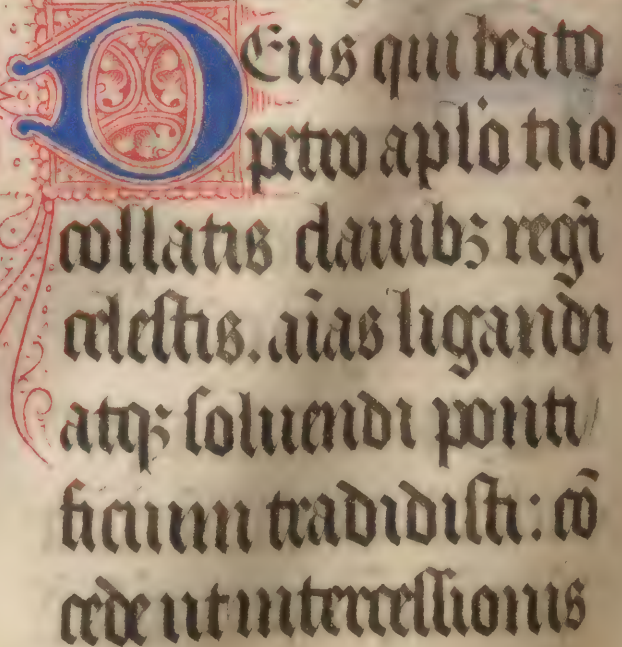 Deus qui beato
petro aplo̅ tuo
collatis clauibꝫ regni̅
celestis. ai̅as ligandi
atqꝫ soluendi ponti
ficium tradidisti: co̅
cede ut intercessionis